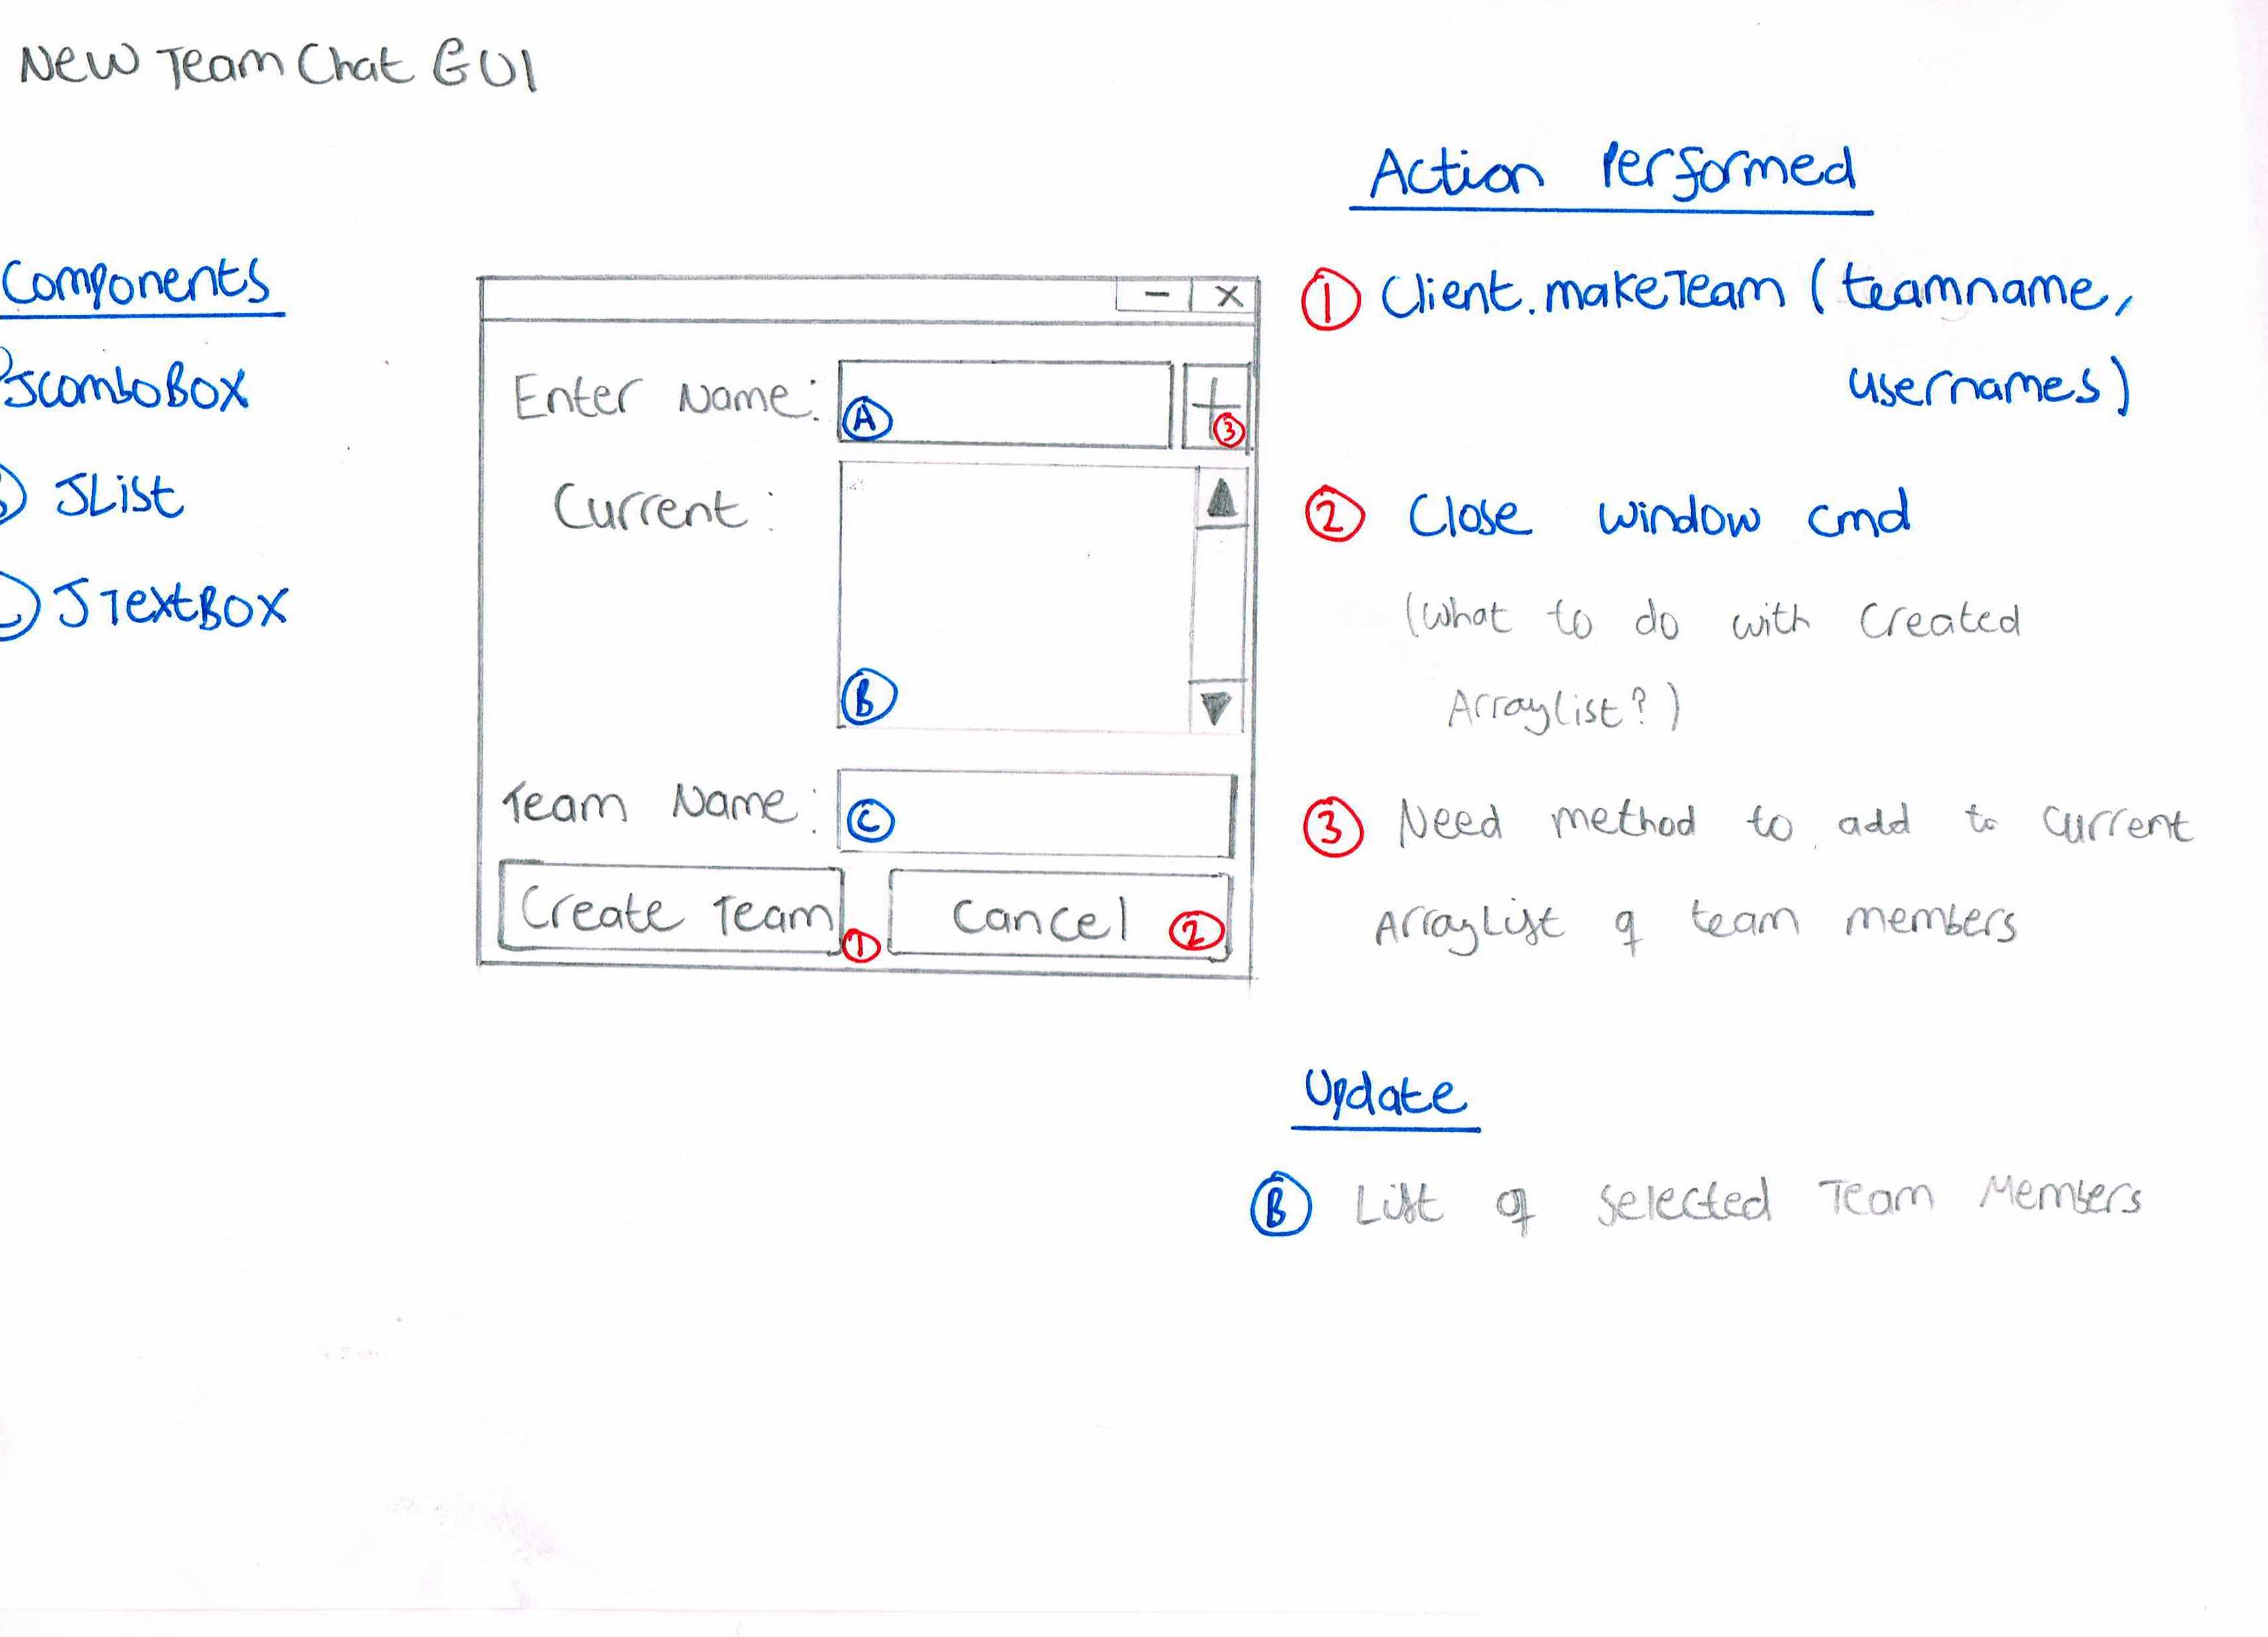 New Team Chat GUI
Components
JComboBox
B JList
C JTextBox
- X
Enter Name: A + 3
Current:
B
Team Name: C
Create Team 1 Cancel 2
Action Performed
1 Client.makeTeam (teamname,
usernames)
2 Close window cmd
(what to do with created
Arraylist?)
3 Need method to add to current
ArrayList of team members
Update
B List of selected Team Members